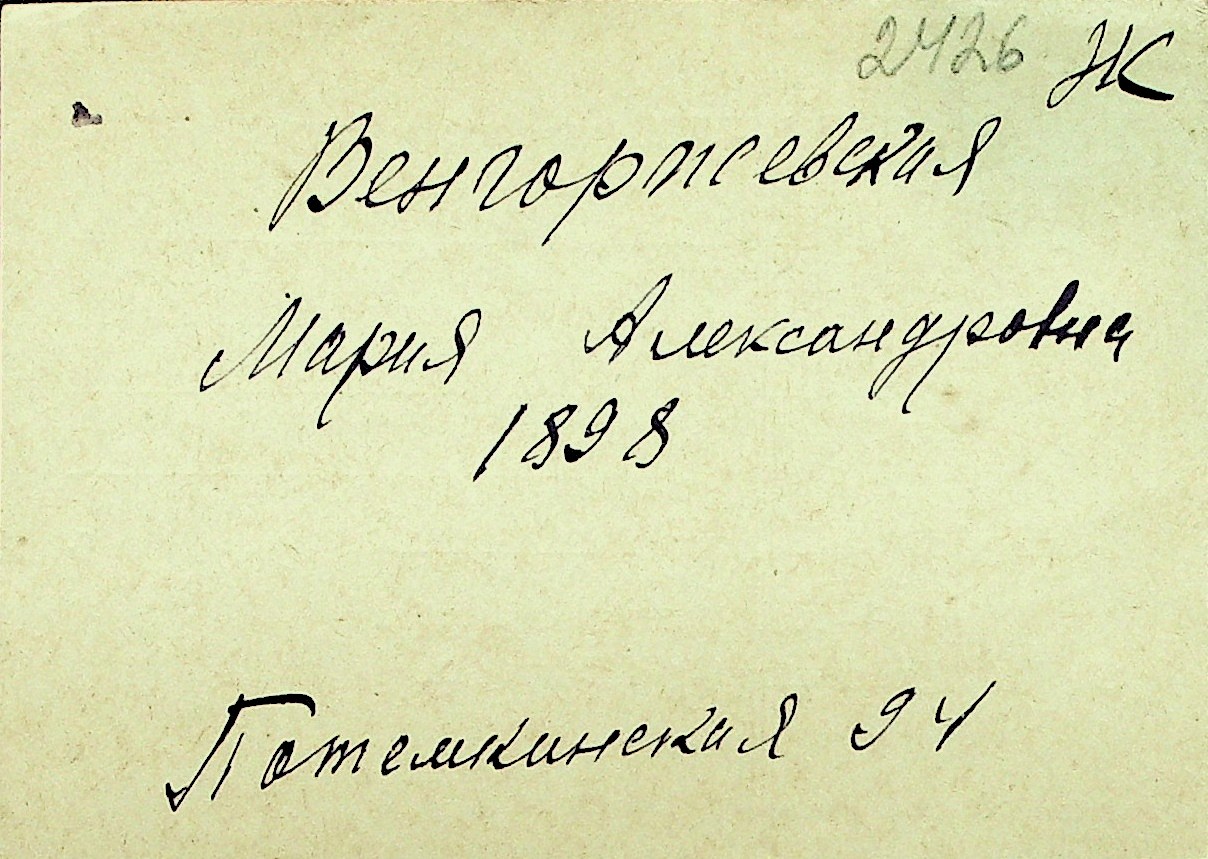 2426 Ж
Венгоржевская
Мария Александровна
1898
Потемкинская 94